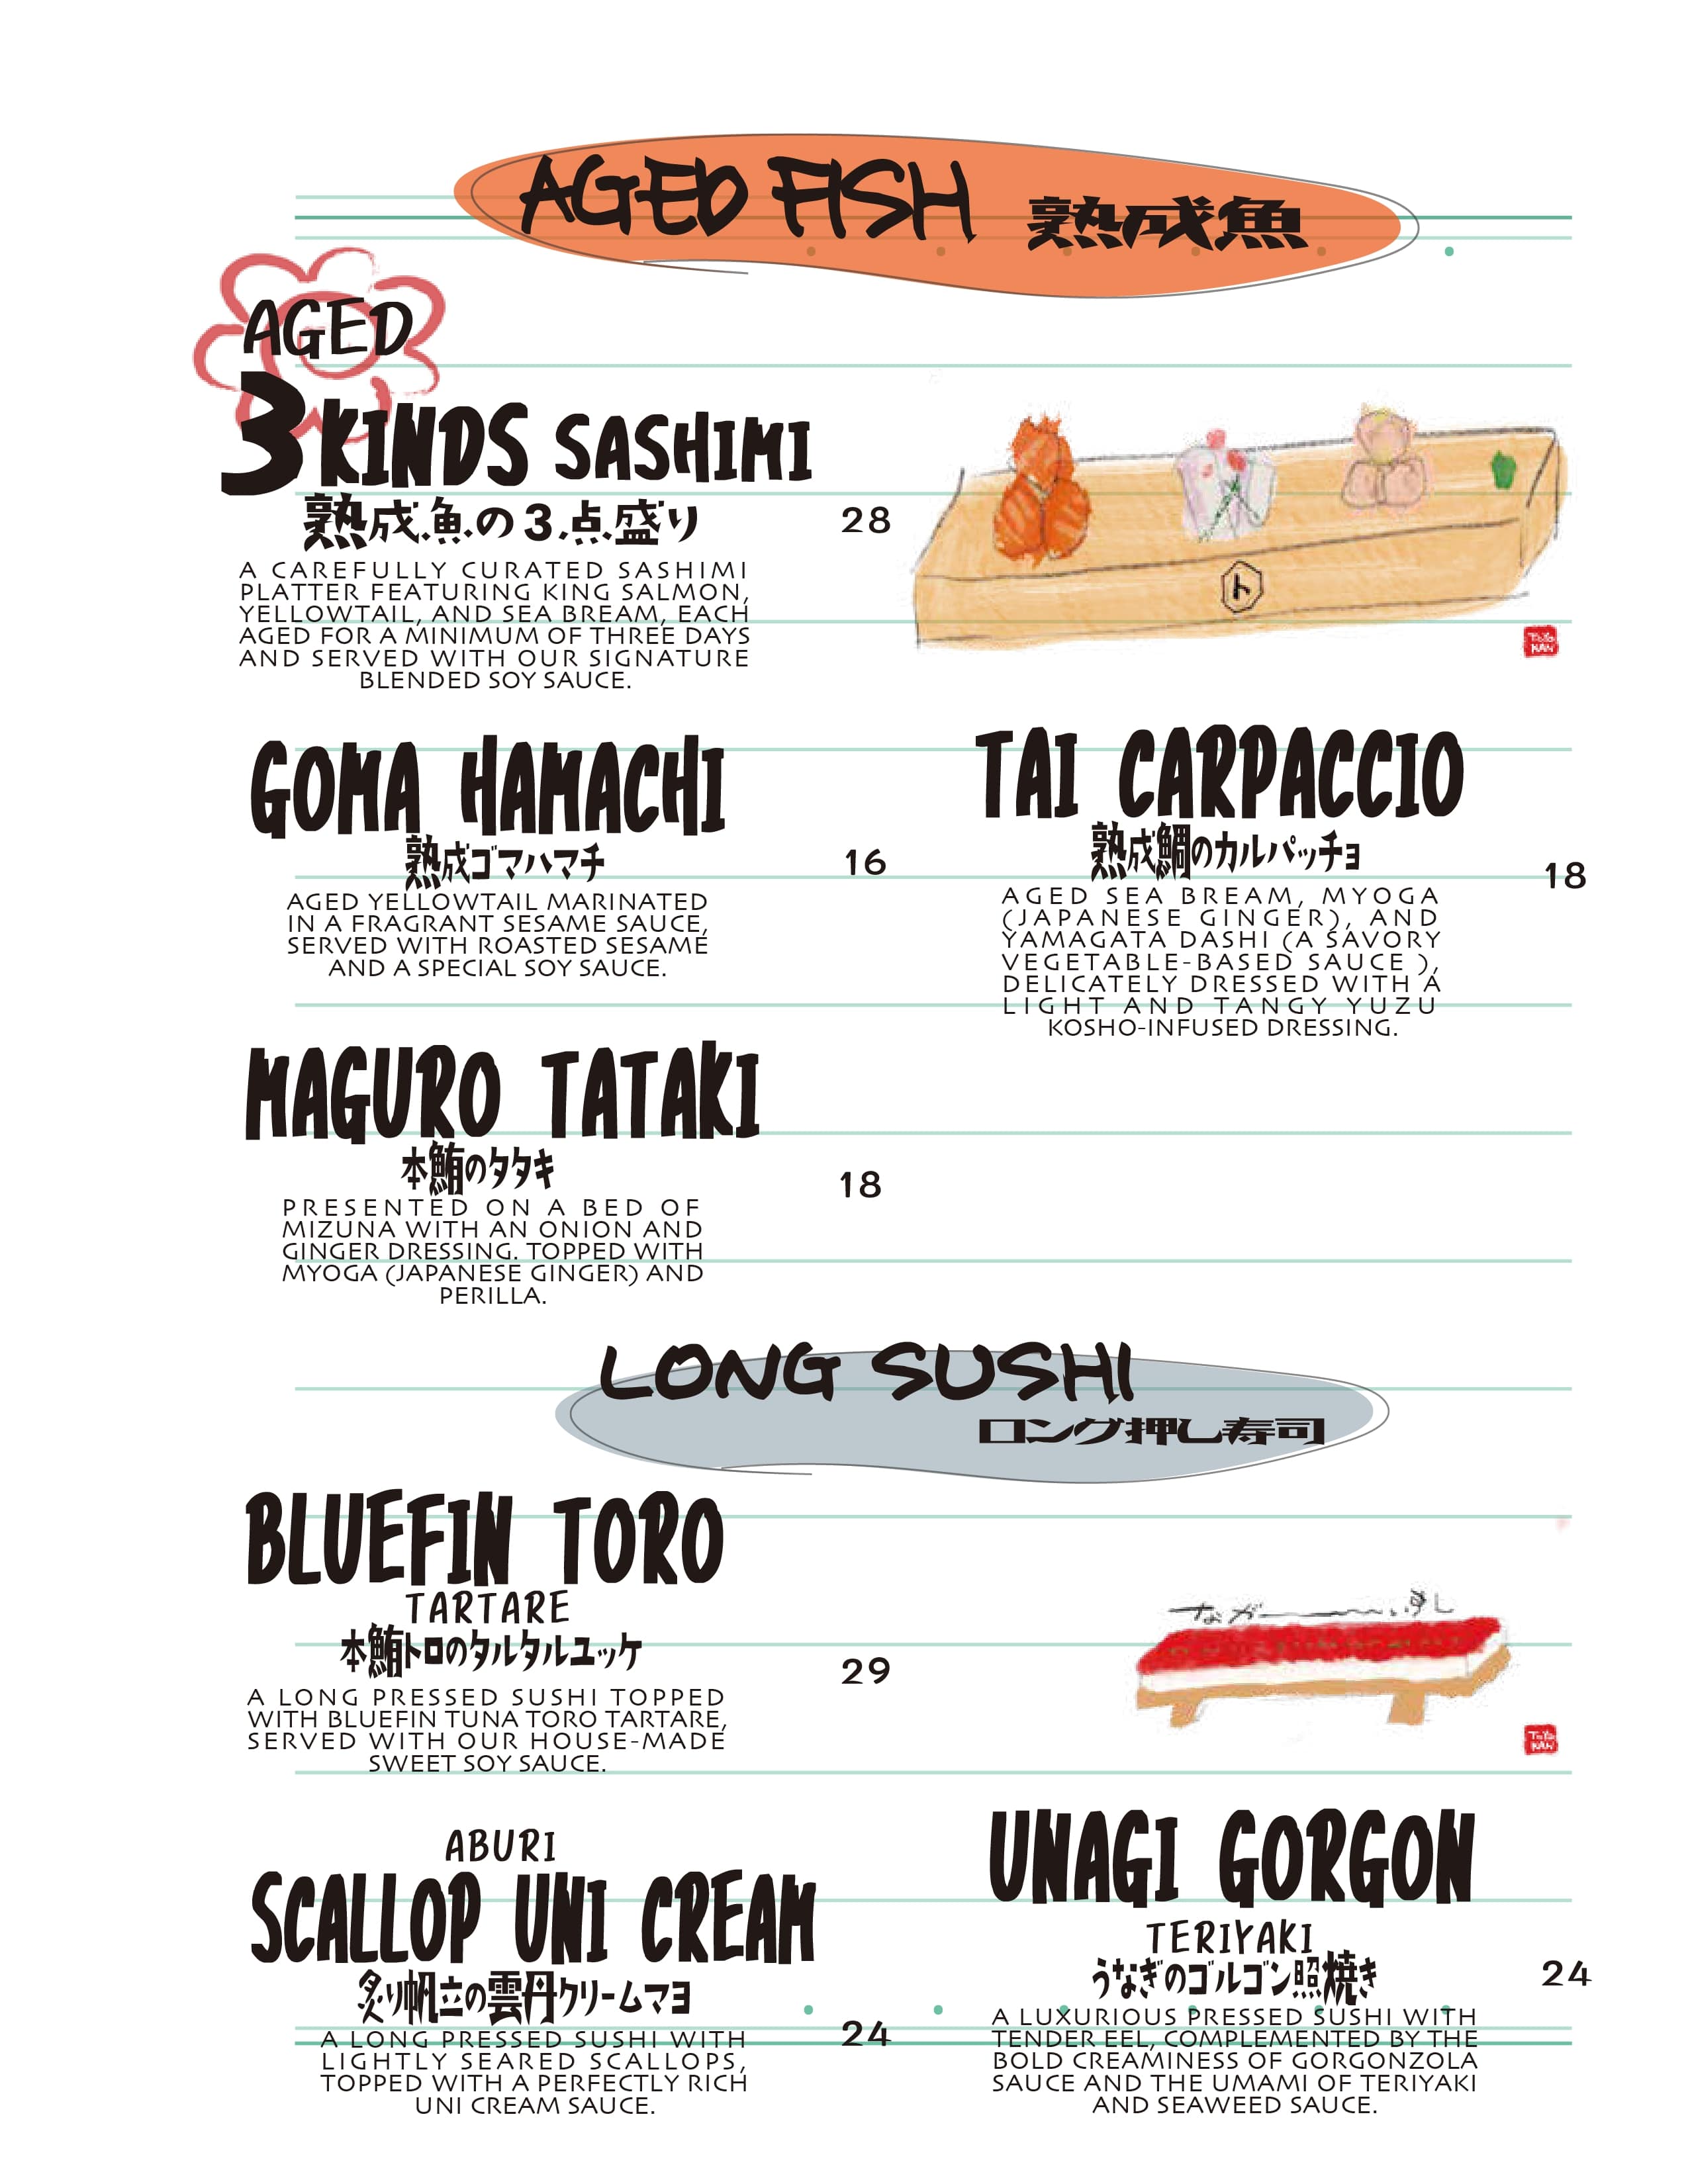 AGED FISH 熟成魚
AGED
3 KINDS SASHIMI
熟成魚の3点盛り
28
A CAREFULLY CURATED SASHIMI
PLATTER FEATURING KING SALMON,
YELLOWTAIL, AND SEA BREAM, EACH
AGED FOR A MINIMUM OF THREE DAYS
AND SERVED WITH OUR SIGNATURE
BLENDED SOY SAUCE.
ト
GOMA HAMACHI
熟成ゴマハマチ
16
AGED YELLOWTAIL MARINATED
IN A FRAGRANT SESAME SAUCE,
SERVED WITH ROASTED SESAME
AND A SPECIAL SOY SAUCE.
TAI CARPACCIO
熟成鯛のカルパッチョ
18
AGED SEA BREAM, MYOGA
(JAPANESE GINGER), AND
YAMAGATA DASHI (A SAVORY
VEGETABLE-BASED SAUCE ),
DELICATELY DRESSED WITH A
LIGHT AND TANGY YUZU
KOSHO-INFUSED DRESSING.
MAGURO TATAKI
本鮪のタタキ
18
PRESENTED ON A BED OF
MIZUNA WITH AN ONION AND
GINGER DRESSING. TOPPED WITH
MYOGA (JAPANESE GINGER) AND
PERILLA.
LONG SUSHI
ロング押し寿司
BLUEFIN TORO
TARTARE
本鮪トロのタルタルユッケ
29
A LONG PRESSED SUSHI TOPPED
WITH BLUEFIN TUNA TORO TARTARE,
SERVED WITH OUR HOUSE-MADE
SWEET SOY SAUCE.
ABURI
SCALLOP UNI CREAM
炙り帆立の雲丹クリームマヨ
24
A LONG PRESSED SUSHI WITH
LIGHTLY SEARED SCALLOPS,
TOPPED WITH A PERFECTLY RICH
UNI CREAM SAUCE.
UNAGI GORGON
TERIYAKI
うなぎのゴルゴン照焼き
24
A LUXURIOUS PRESSED SUSHI WITH
TENDER EEL, COMPLEMENTED BY THE
BOLD CREAMINESS OF GORGONZOLA
SAUCE AND THE UMAMI OF TERIYAKI
AND SEAWEED SAUCE.